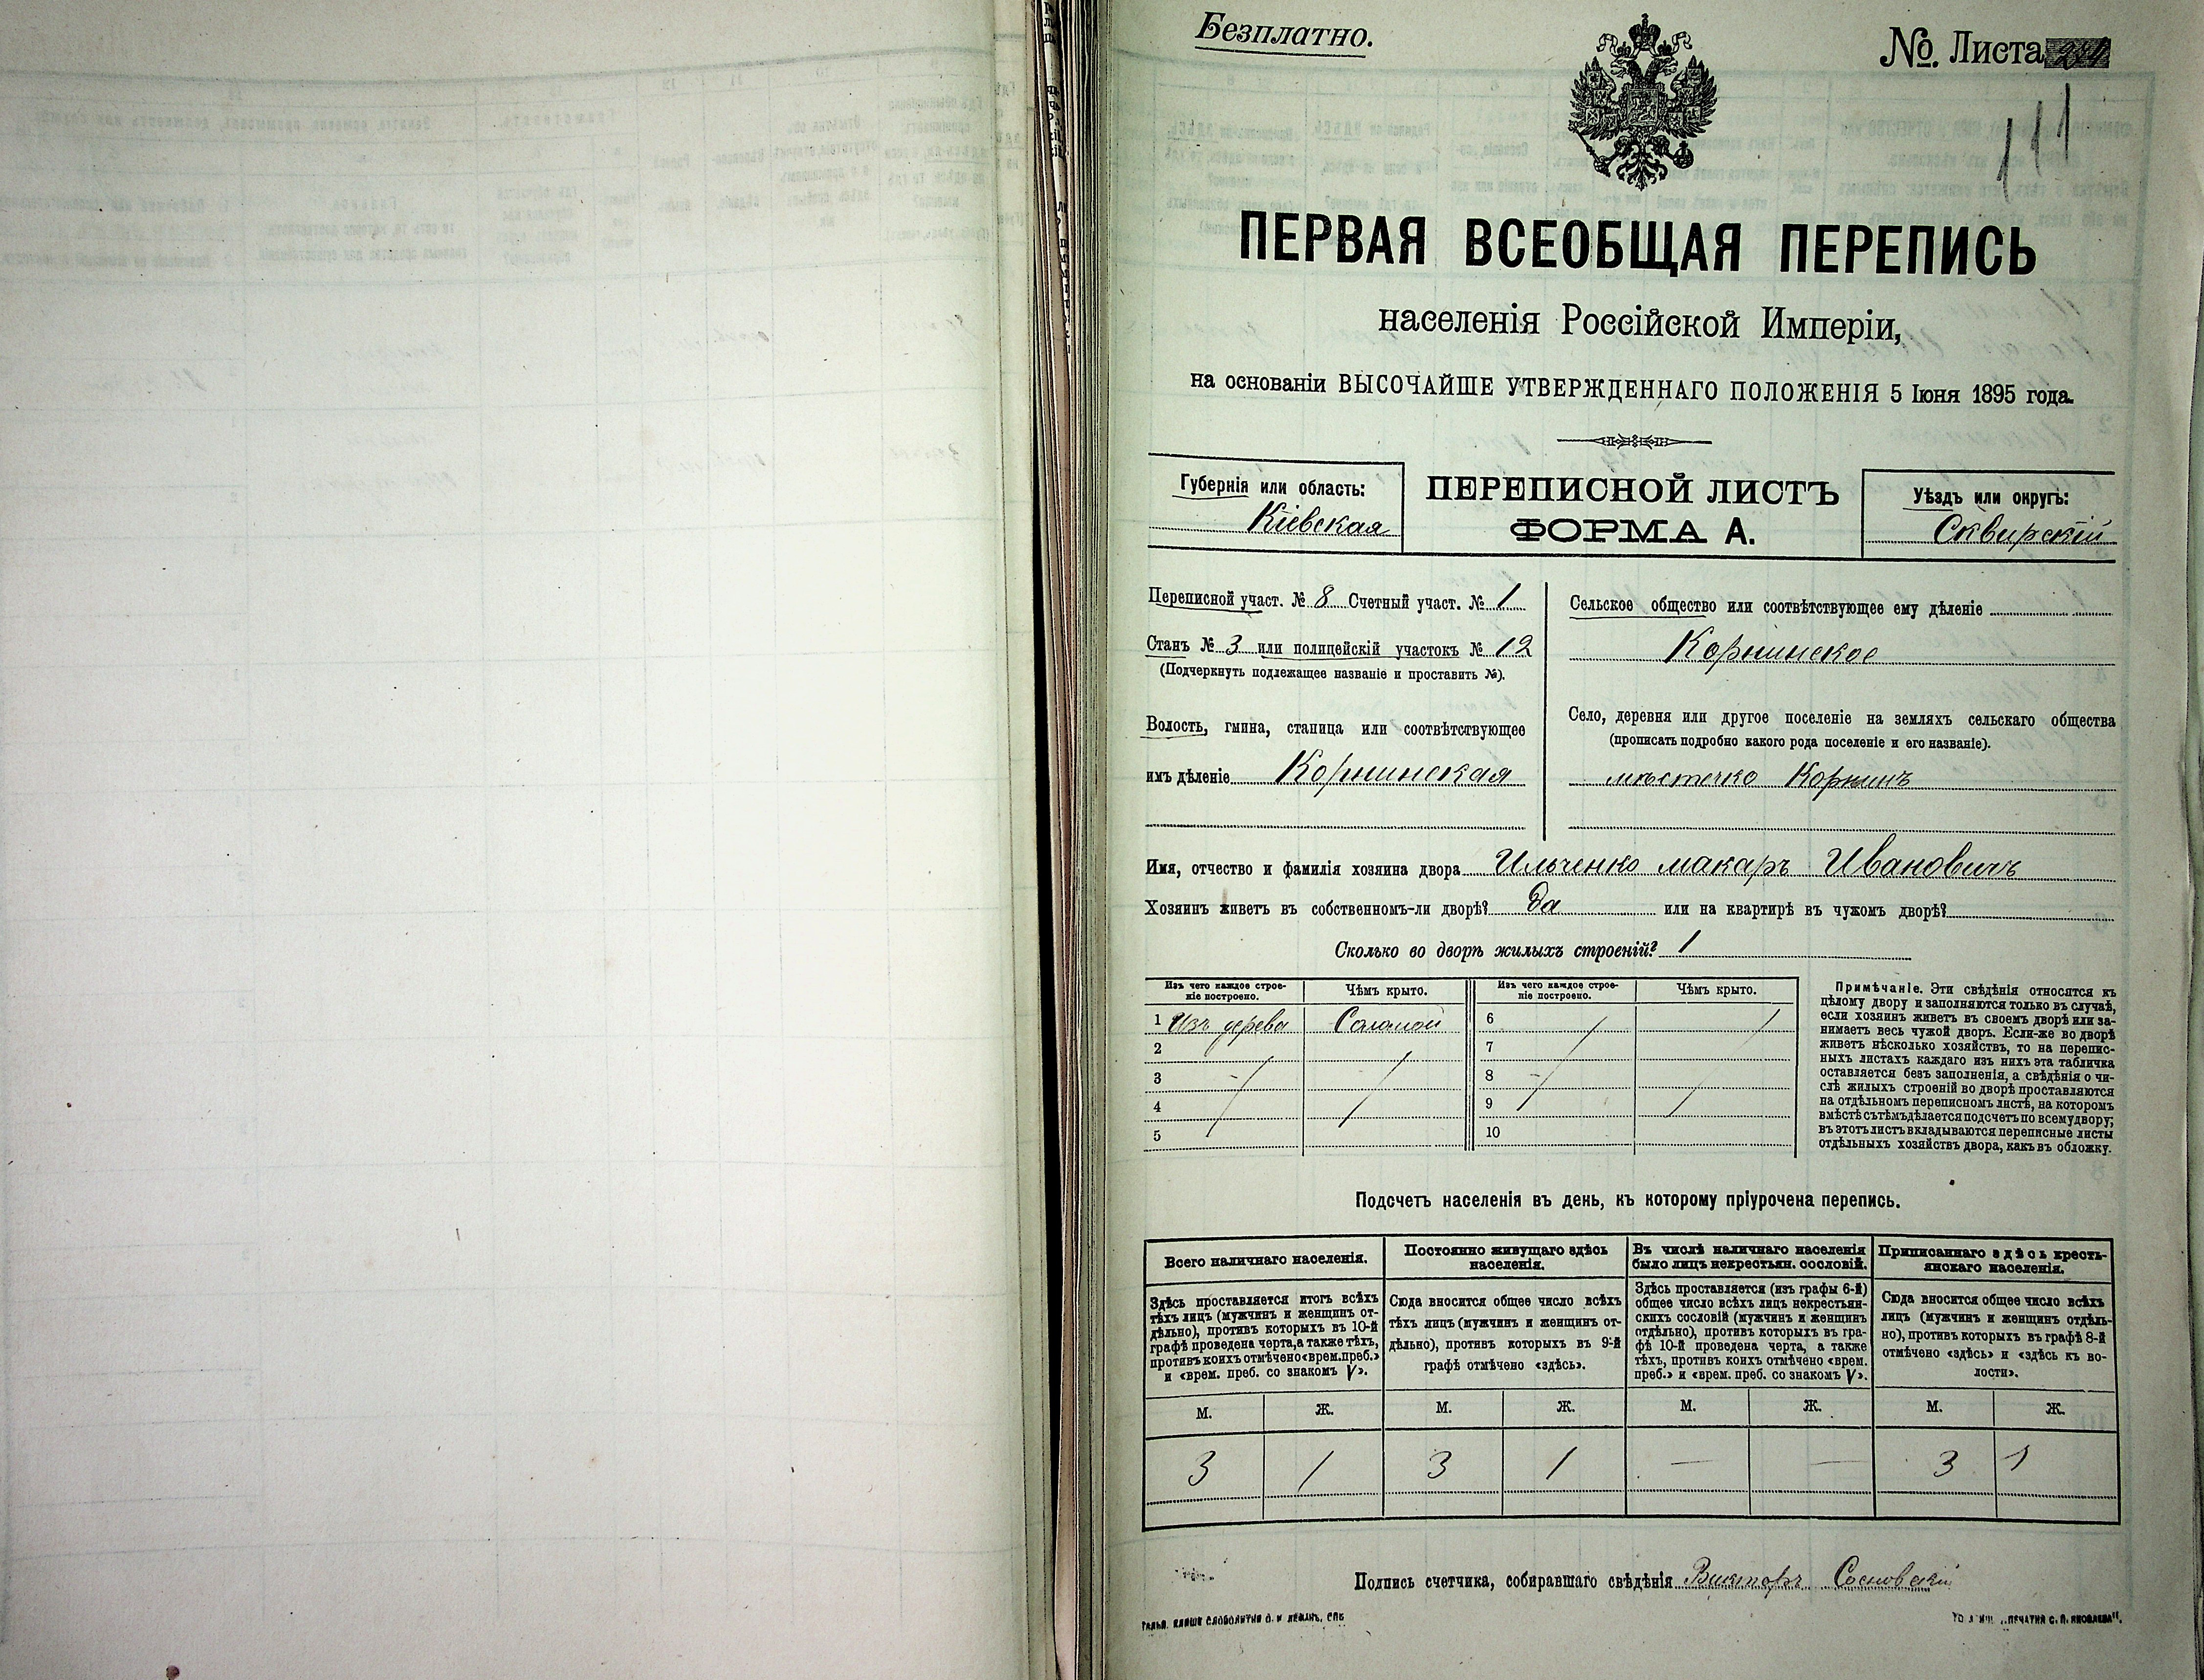 Безплатно.
№. Листа
111
ПЕРВАЯ ВСЕОБЩАЯ ПЕРЕПИСЬ
населенія Россійской Имперіи,
на основаніи ВЫСОЧАЙШЕ УТВЕРЖДЕННАГО ПОЛОЖЕНІЯ 5 Іюня 1895 года.
Губернія или область:
Кіевская
ПЕРЕПИСНОЙ ЛИСТЪ
ФОРМА А.
Уѣздъ или округъ:
Сквирскій
Переписной участ. № 8 Счетный участ. № 1
Станъ № 3 или полицейскій участокъ № 12
(Подчеркнуть подлежащее названіе и проставить №).
Волость, гмина, станица или соотвѣтствующее
имъ дѣленіе Корнинская
Сельское общество или соотвѣтствующее ему дѣленіе
Корнинское
Село, деревня или другое поселеніе на земляхъ сельскаго общества
(прописать подробно какого рода поселеніе и его названіе).
мѣстечко Корнинъ
Имя, отчество и фамилія хозяина двора Ильченко Макаръ Ивановичъ
Хозяинъ живетъ въ собственномъ-ли дворѣ? Да или на квартирѣ въ чужомъ дворѣ?
Сколько во дворѣ жилыхъ строеній? 1
Изъ чего каждое строе-
ніе построено.
Чѣмъ крыто.
Изъ чего каждое строе-
ніе построено.
Чѣмъ крыто.
1 Изъ дерева Соломой 6
2 7
3 8
4 9
5 10
Примѣчаніе. Эти свѣдѣнія относятся къ
цѣлому двору и заполняются только въ случаѣ,
если хозяинъ живетъ въ своемъ дворѣ или за-
нимаетъ весь чужой дворъ. Если-же во дворѣ
живетъ нѣсколько хозяйствъ, то на перепис-
ныхъ листахъ каждаго изъ нихъ эта табличка
оставляется безъ заполненія, а свѣдѣнія о чи-
слѣ жилыхъ строеній во дворѣ проставляются
на отдѣльномъ переписномъ листѣ, на которомъ
вмѣстѣ съ тѣмъ дѣлается подсчетъ по всему двору;
въ этотъ листъ вкладываются переписные листы
отдѣльныхъ хозяйствъ двора, какъ въ обложку.
Подсчетъ населенія въ день, къ которому пріурочена перепись.
Всего наличнаго населенія.
Здѣсь проставляется итогъ всѣхъ
тѣхъ лицъ (мужчинъ и женщинъ от-
дѣльно), противъ которыхъ въ 10-й
графѣ проведена черта, а также тѣхъ,
противъ коихъ отмѣчено «врем. преб.»
и «врем. преб. со знакомъ V».
Постоянно живущаго здѣсь
населенія.
Сюда вносится общее число всѣхъ
тѣхъ лицъ (мужчинъ и женщинъ от-
дѣльно), противъ которыхъ въ 9-й
графѣ отмѣчено «здѣсь».
Въ числѣ наличнаго населенія
было лицъ некрестьян. сословій.
Здѣсь проставляется (изъ графы 6-й)
общее число всѣхъ лицъ некрестьян-
скихъ сословій (мужчинъ и женщинъ
отдѣльно), противъ которыхъ въ гра-
фѣ 10-й проведена черта, а также
тѣхъ, противъ коихъ отмѣчено «врем.
преб.» и «врем. преб. со знакомъ V».
Приписаннаго здѣсь кресть-
янскаго населенія.
Сюда вносится общее число всѣхъ
лицъ (мужчинъ и женщинъ отдѣль-
но), противъ которыхъ въ графѣ 8-й
отмѣчено «здѣсь» и «здѣсь къ во-
лости».
М. Ж. М. Ж. М. Ж. М. Ж.
3 1 3 1 — — 3 1
Подпись счетчика, собиравшаго свѣдѣнія Викторъ Сосновскій